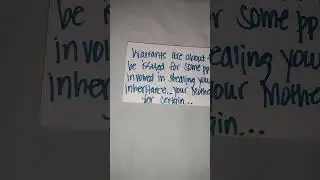 Warrants are about
be issued for some pp
involved in stealing you
Inheritance... your Mothe
for certain...